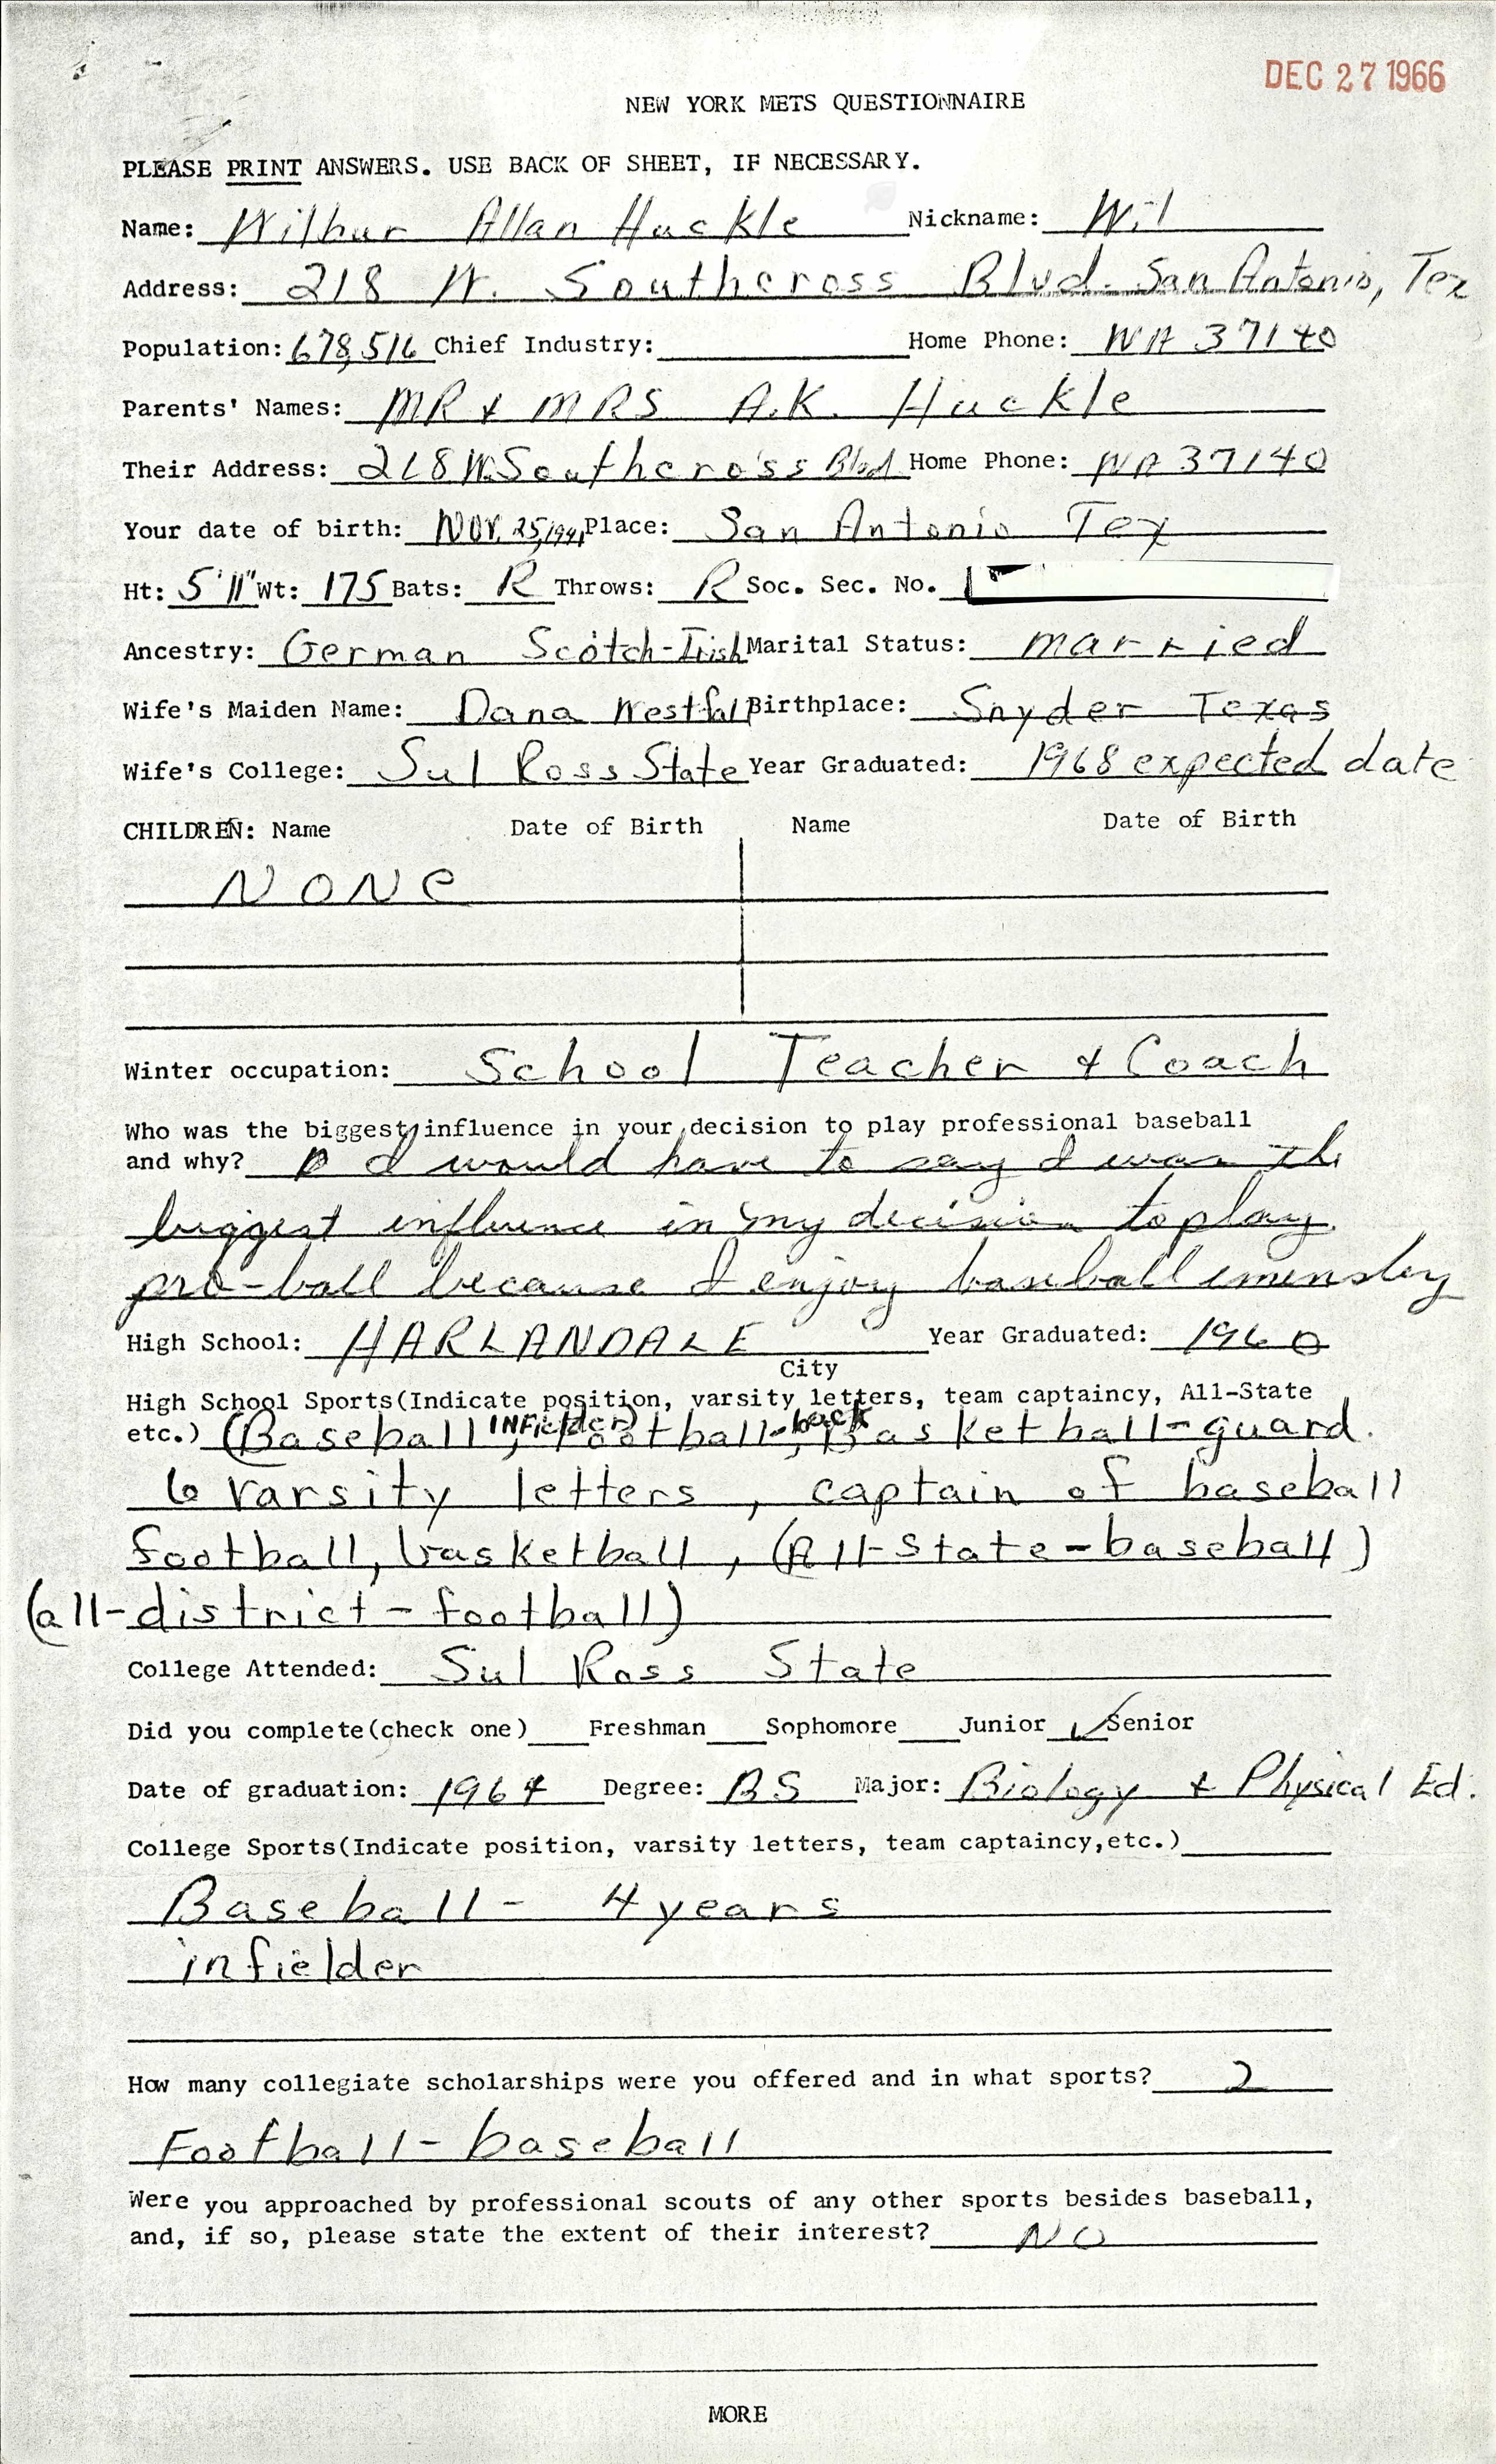 DEC 27 1966
NEW YORK METS QUESTIONNAIRE
PLEASE PRINT ANSWERS. USE BACK OF SHEET, IF NECESSARY.
Name: Wilbur Allan Huckle Nickname: Wil
Address: 218 W. Southcross Blvd. San Antonio, Tex
Population: 678,516 Chief Industry: Home Phone: WA 37140
Parents' Names: MR & MRS A.K. Huckle
Their Address: 218 W. Southcross Blvd Home Phone: WA 37140
Your date of birth: NOV. 25, 1941 Place: San Antonio Tex
Ht: 5'11" Wt: 175 Bats: R Throws: R Soc. Sec. No.
Ancestry: German Scotch-Irish Marital Status: married
Wife's Maiden Name: Dana Westfall Birthplace: Snyder Texas
Wife's College: Sul Ross State Year Graduated: 1968 expected date
CHILDREN: Name Date of Birth Name Date of Birth
NONE
Winter occupation: School Teacher & Coach
Who was the biggest influence in your decision to play professional baseball
and why? I would have to say I was the
biggest influence in my decision to play
pro-ball because I enjoy baseball imensley
High School: HARLANDALE Year Graduated: 1960
City
High School Sports(Indicate position, varsity letters, team captaincy, All-State
etc.) (Baseball INFielder), Football-back, Basketball-guard.
6 varsity letters, captain of baseball
football, basketball, (All-State-baseball)
(all-district-football)
College Attended: Sul Ross State
Did you complete(check one) Freshman Sophomore Junior ✓ Senior
Date of graduation: 1964 Degree: BS Major: Biology & Physical Ed.
College Sports(Indicate position, varsity letters, team captaincy,etc.)
Baseball - 4 years
infielder
How many collegiate scholarships were you offered and in what sports? 2
Football - baseball
Were you approached by professional scouts of any other sports besides baseball,
and, if so, please state the extent of their interest? NO
MORE